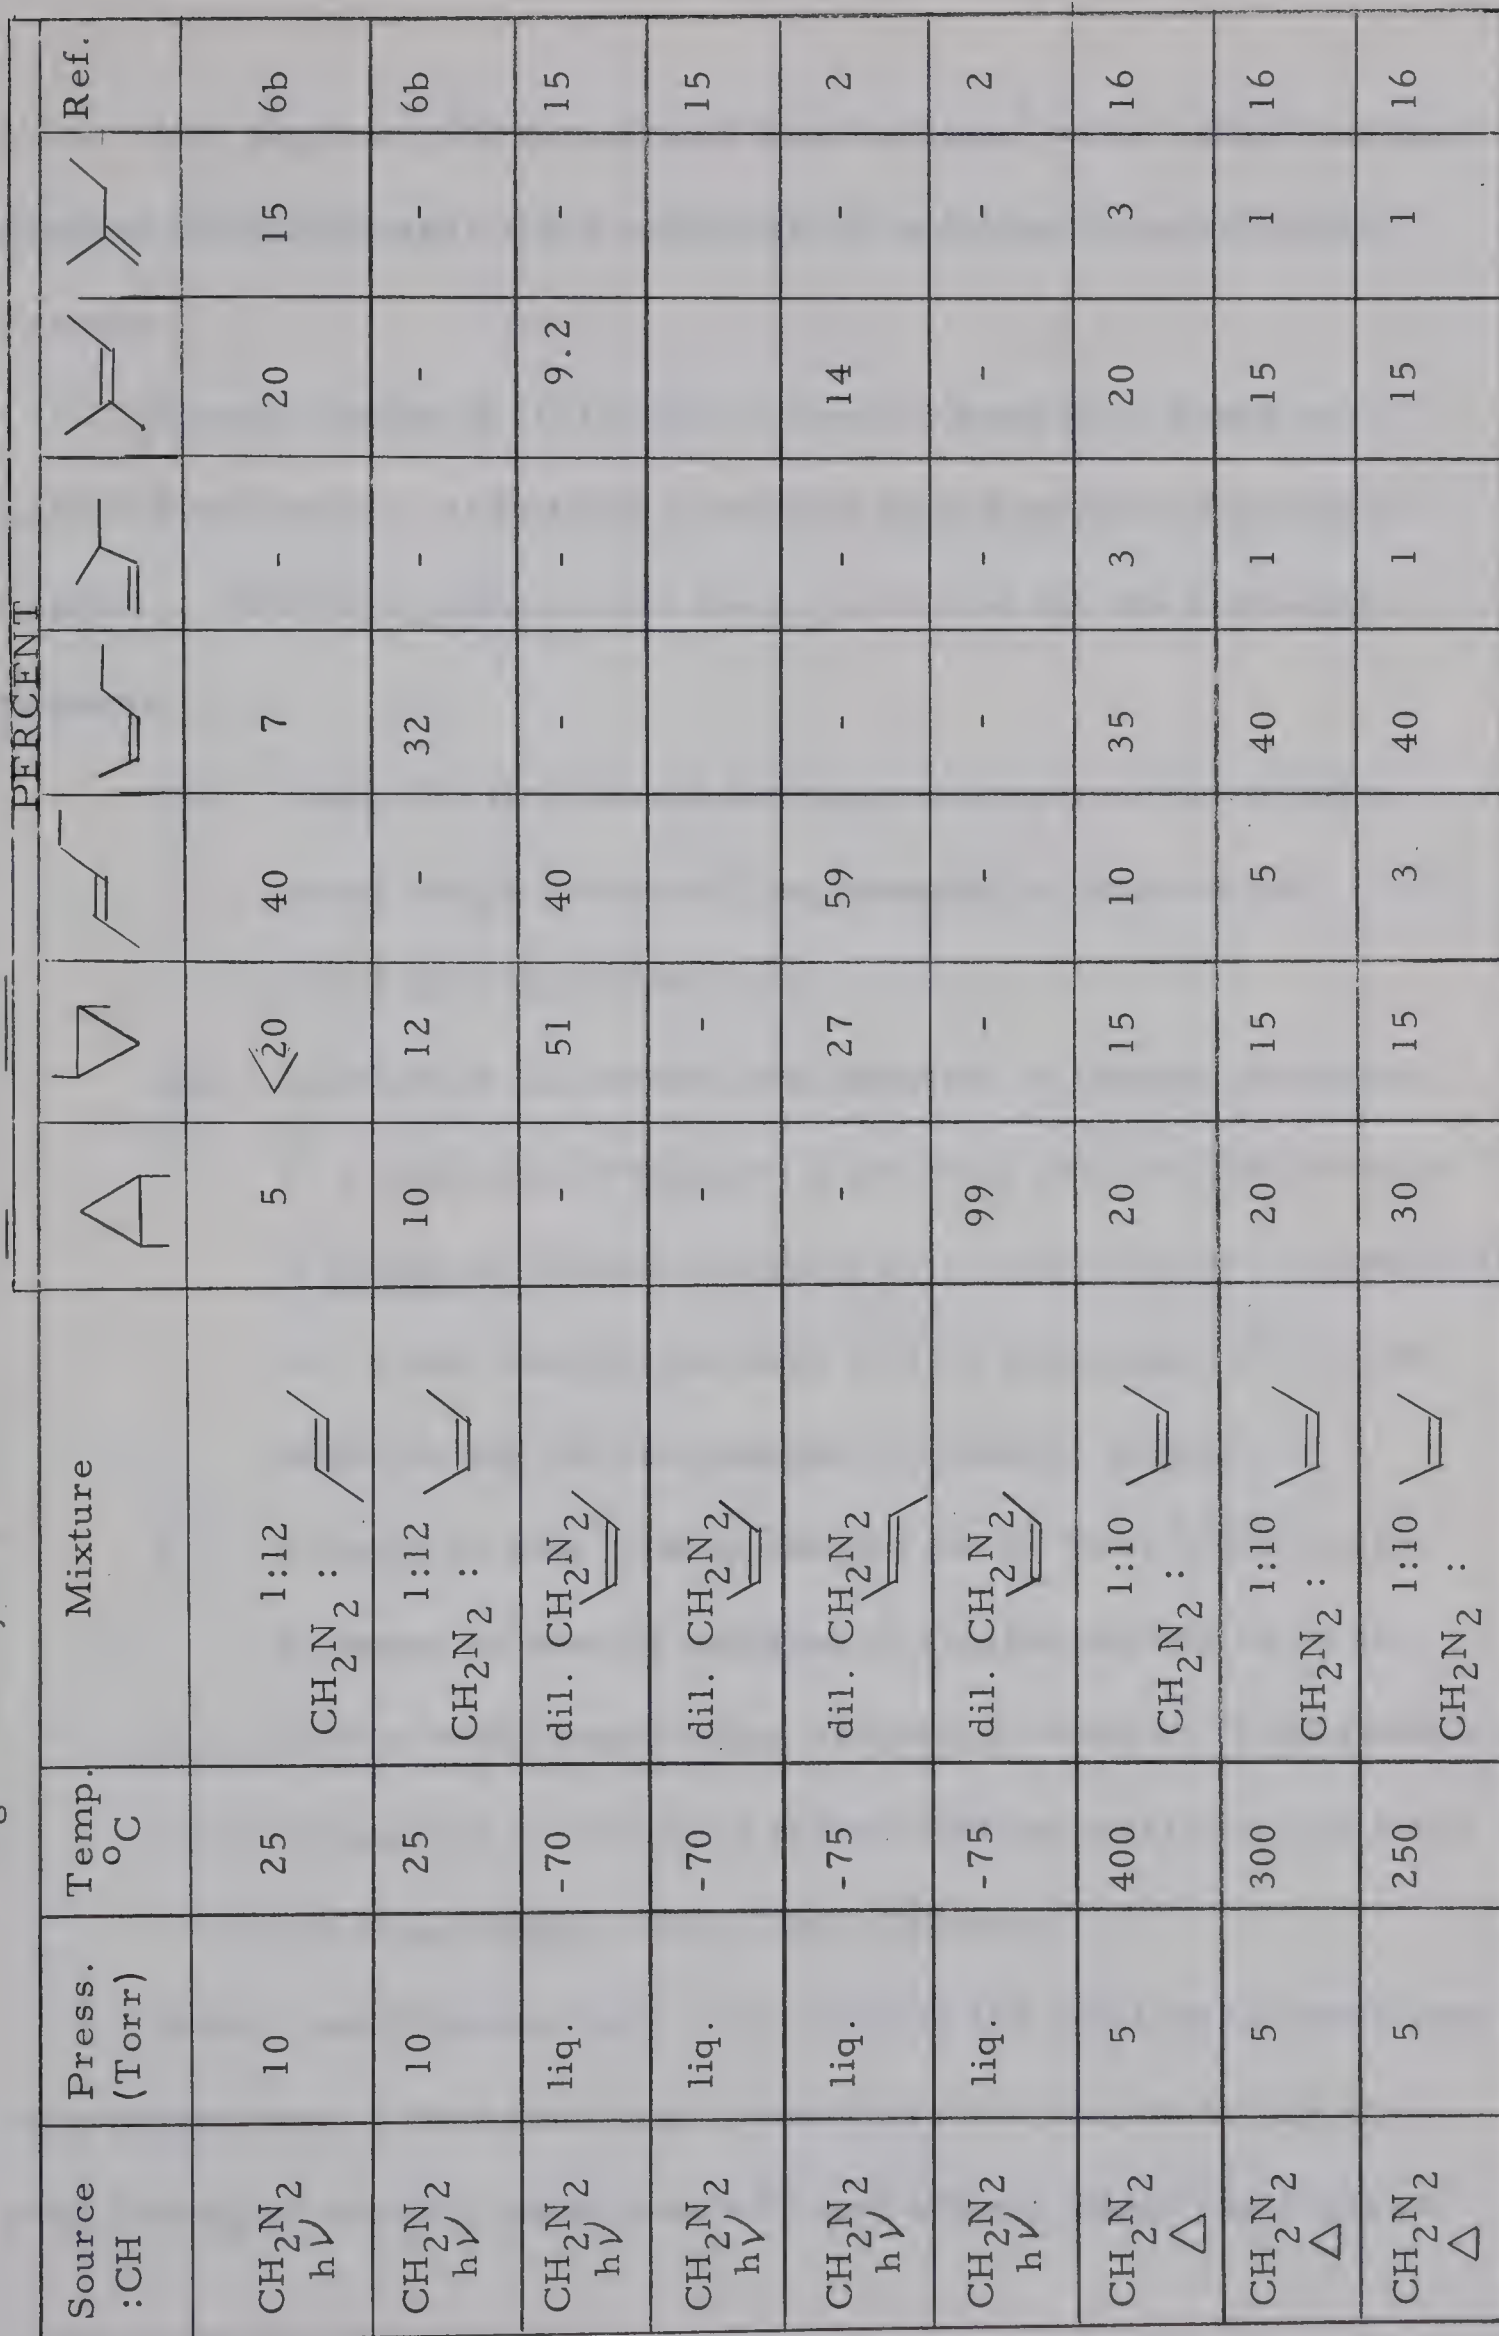 PERCENT
Source :CH Press. (Torr) Temp. °C Mixture Ref.
CH2N2 hν 10 25 1:12 CH2N2 : 5 <20 40 7 - 20 15 6b
CH2N2 hν 10 25 1:12 CH2N2 : 10 12 - 32 - - - 6b
CH2N2 hν liq. -70 dil. CH2N2 - 51 40 - - 9.2 - 15
CH2N2 hν liq. -70 dil. CH2N2 - - 15
CH2N2 hν liq. -75 dil. CH2N2 - 27 59 - - 14 - 2
CH2N2 hν liq. -75 dil. CH2N2 99 - - - - - - 2
CH2N2 △ 5 400 1:10 CH2N2 : 20 15 10 35 3 20 3 16
CH2N2 △ 5 300 1:10 CH2N2 : 20 15 5 40 1 15 1 16
CH2N2 △ 5 250 1:10 CH2N2 : 30 15 3 40 1 15 1 16